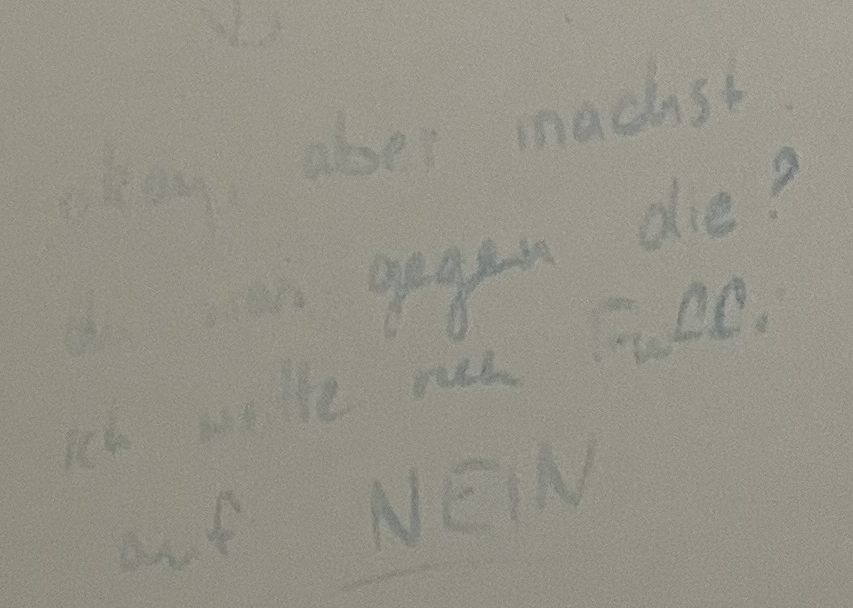 okay, aber machst
du was gegen die?
ich wollte nen
auf NEIN